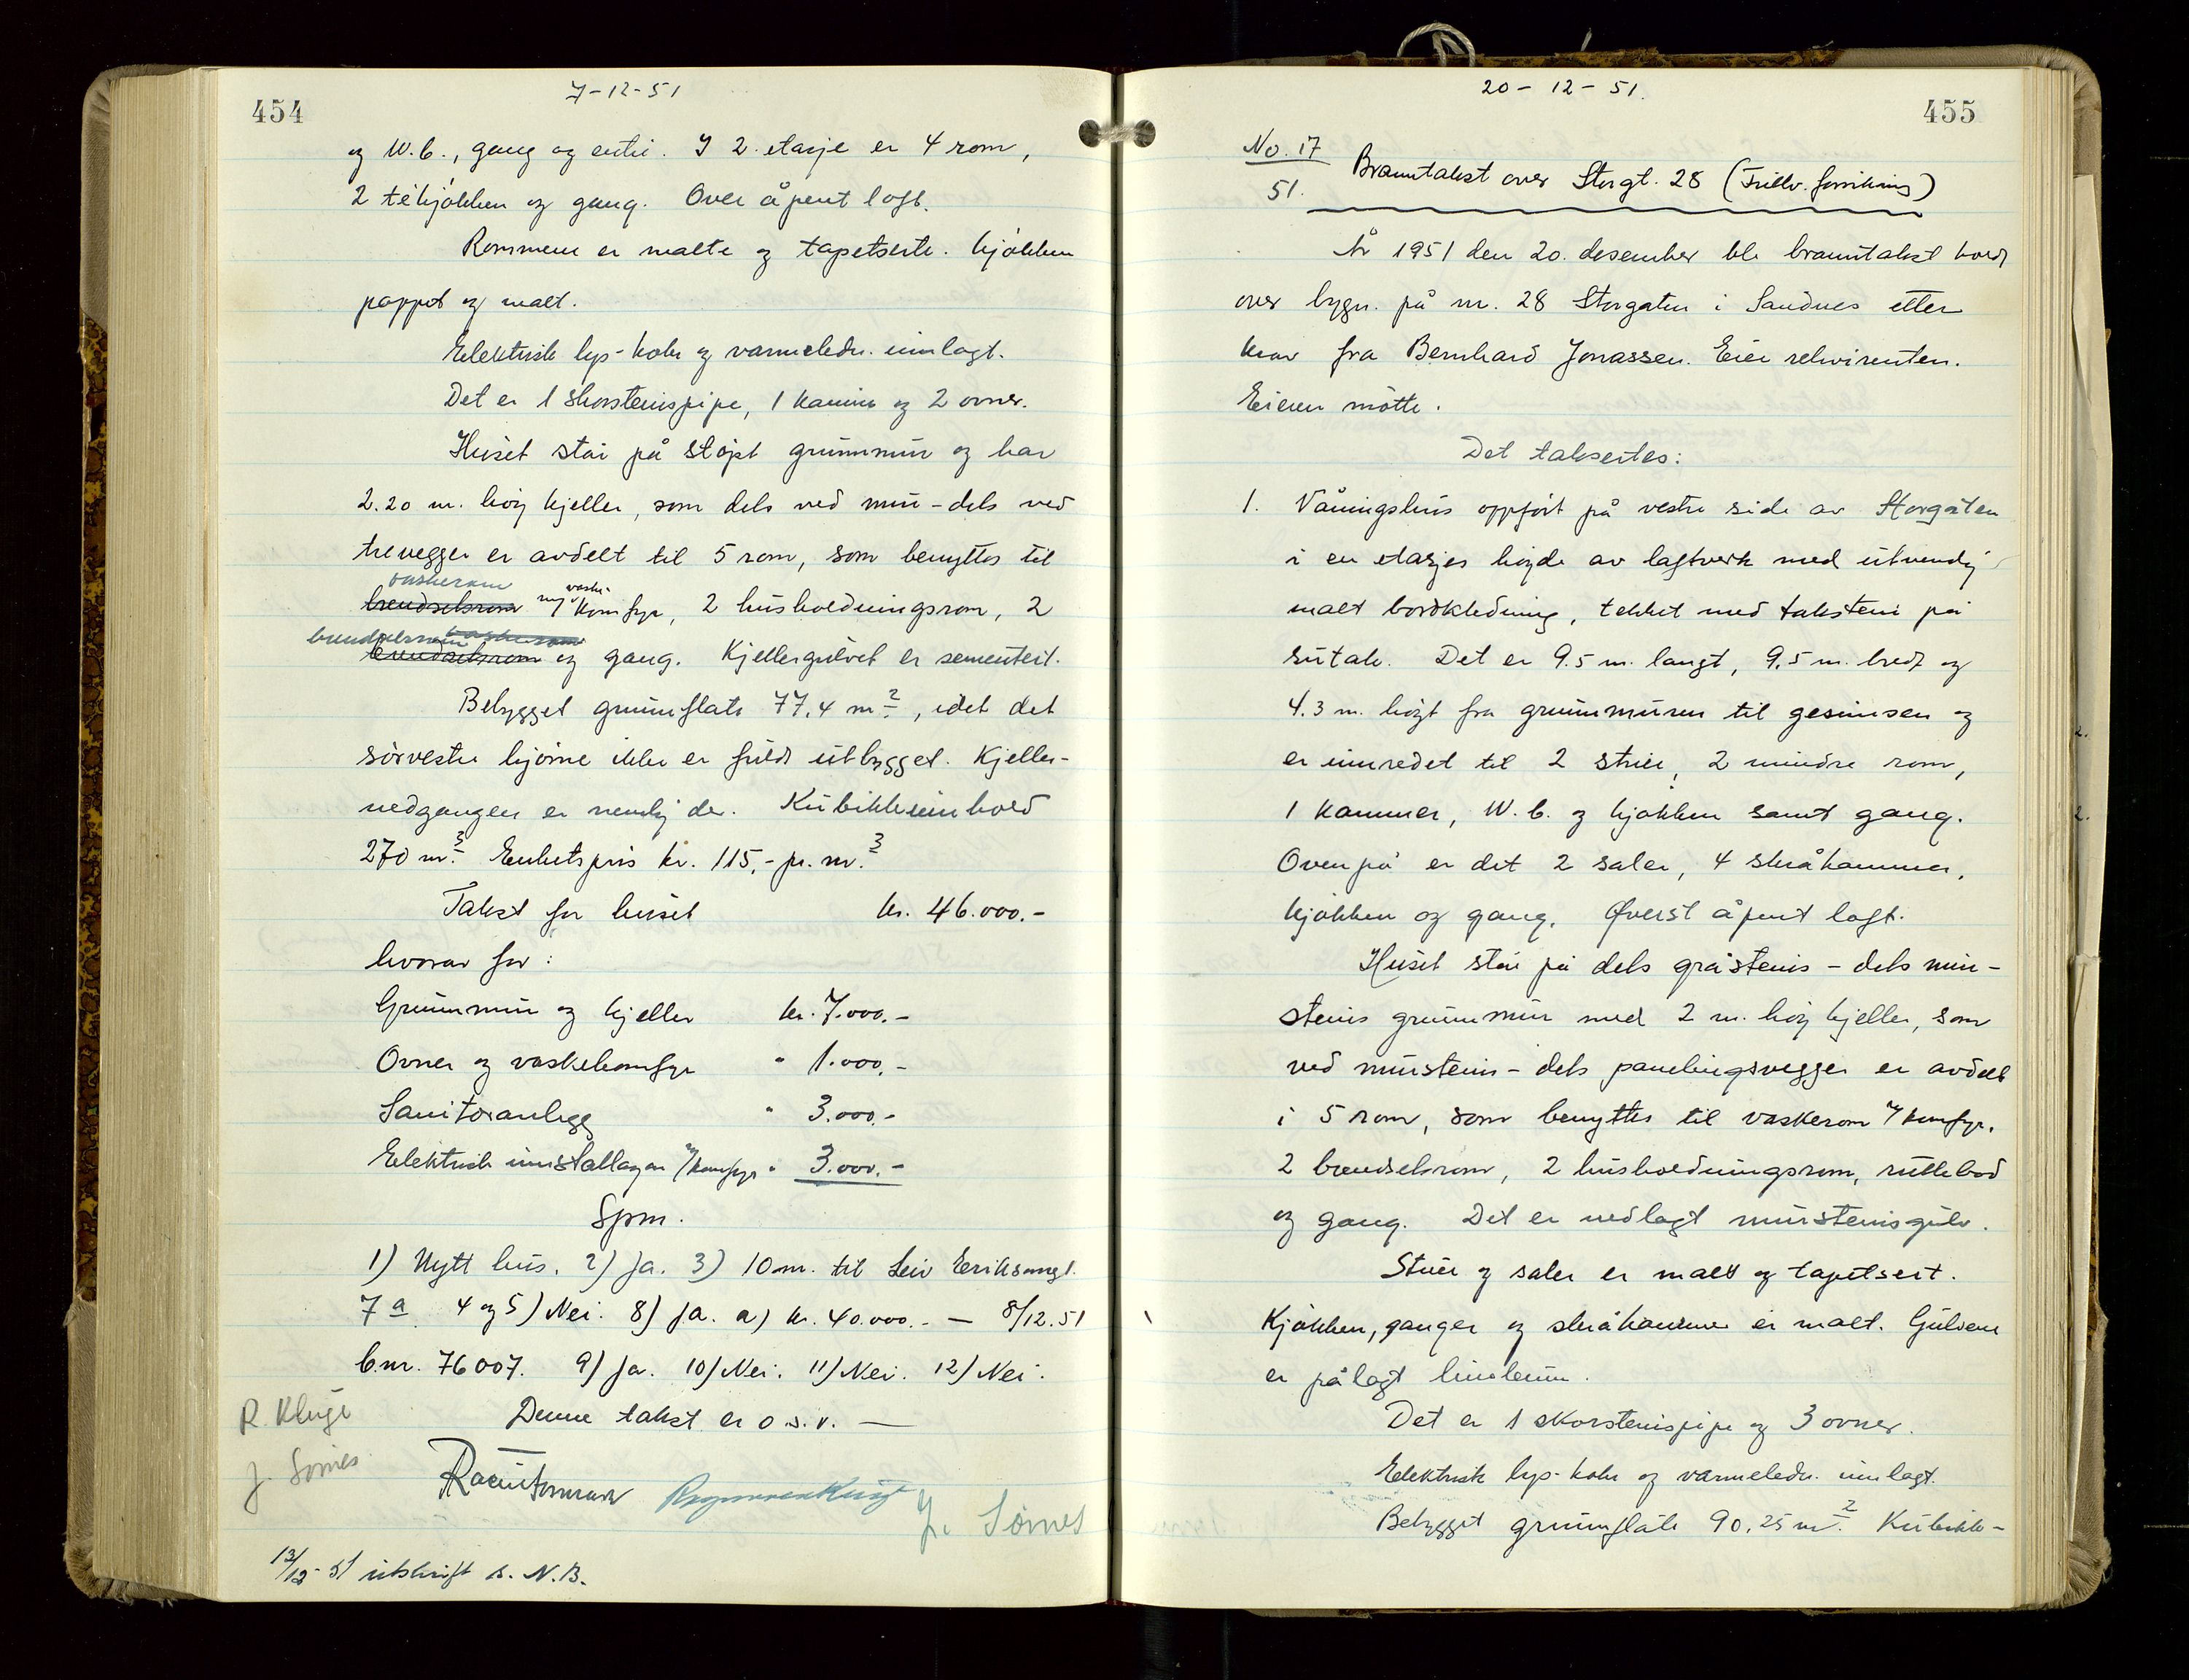 454
7-12-51
og W.C., gang og entré. I 2. etasje er 4 rom,
2 tékjøkken og gang. Over åpent loft.
Rommene er malte og tapetserte. Kjøkken
pappet og malt.
Elektrisk lys- koke og varmeledn. innlagt.
Det er 1 skorsteinspipe, 1 kamin og 2 ovner.
Huset står på støpt grunnmur og har
2.20 m. høy kjeller, som dels ved mur- dels ved
trevegger er avdelt til 5 rom, som benyttes til
vaskerom
brendselsrom m/ vaske-komfyr, 2 husholdningsrom, 2
brendselsrom vaskerom
brendselsrom og gang. Kjellergulvet er sementert.
Bebygget grunnflate 77,4 m², idet det
sørvestre hjørne ikke er fuldt utbygget. Kjeller-
nedgangen er nemlig der. Kubikkinnhold
270 m³. Enhetspris kr. 115,- pr. m.³
Takst for huset kr. 46.000.-
hvorav for:
Grunnmur og kjeller kr. 7.000.-
Ovner og vaskekomfyr " 1.000.-
Sanitæranlegg " 3.000.-
Elektrisk installasjon m/komfyr " 3.000.-
Spm.
1) Nytt hus. 2) Ja. 3) 10 m. til Leiv Eriksonsgt.
7a. 4 og 5) Nei. 8) Ja. a) kr. 40.000.- — 8/12.51
b. nr. 76007. 9) Ja. 10) Nei. 11) Nei. 12) Nei.
Denne takst er o.s.v. —
R. Kluge
J. Sømes
J. Sømes
13/12-51 utskrift s. N.B.
20-12-51.
455
No. 17
51.
Branntakst over Storgt. 28 (Frillv. forsikring)
År 1951 den 20. desember ble branntakst holdt
over bygn. på nr. 28 Storgaten i Sandnes etter
krav fra Bernhard Jonassen. Eier rekvirenten.
Eieren møtte.
Det taksertes:
1. Våningshus oppført på vestre side av Storgaten
i en etasjes høyde av laftverk med utvendig
malt bordkledning, tekket med takstein på
sutak. Det er 9.5 m. langt, 9,5 m. bredt og
4.3 m. høgt fra grunnmuren til gesimsen og
er innredet til 2 stuer, 2 mindre rom,
1 kammer, W.C. og kjøkken samt gang.
Ovenpå er det 2 saler, 4 skråkammer,
kjøkken og gang. Øverst åpent loft.
Huset står på dels gråsteins- dels mur-
steins grunnmur med 2 m. høy kjeller, som
ved murstein- dels panelingsvegger er avdelt
i 5 rom, som benyttes til vaskerom m/komfyr,
2 brendselsrom, 2 husholdningsrom, rullebod
og gang. Det er nedlagt mursteinsgulv.
Stuer og saler er malt og tapetsert.
Kjøkken, ganger og skråkammer er malt. Gulvene
er pålagt linoleum.
Det er 1 skorsteinspipe og 3 ovner.
Elektrisk lys- koke og varmeledn. innlagt.
Bebygget grunnflate 90,25 m². Kubikk-